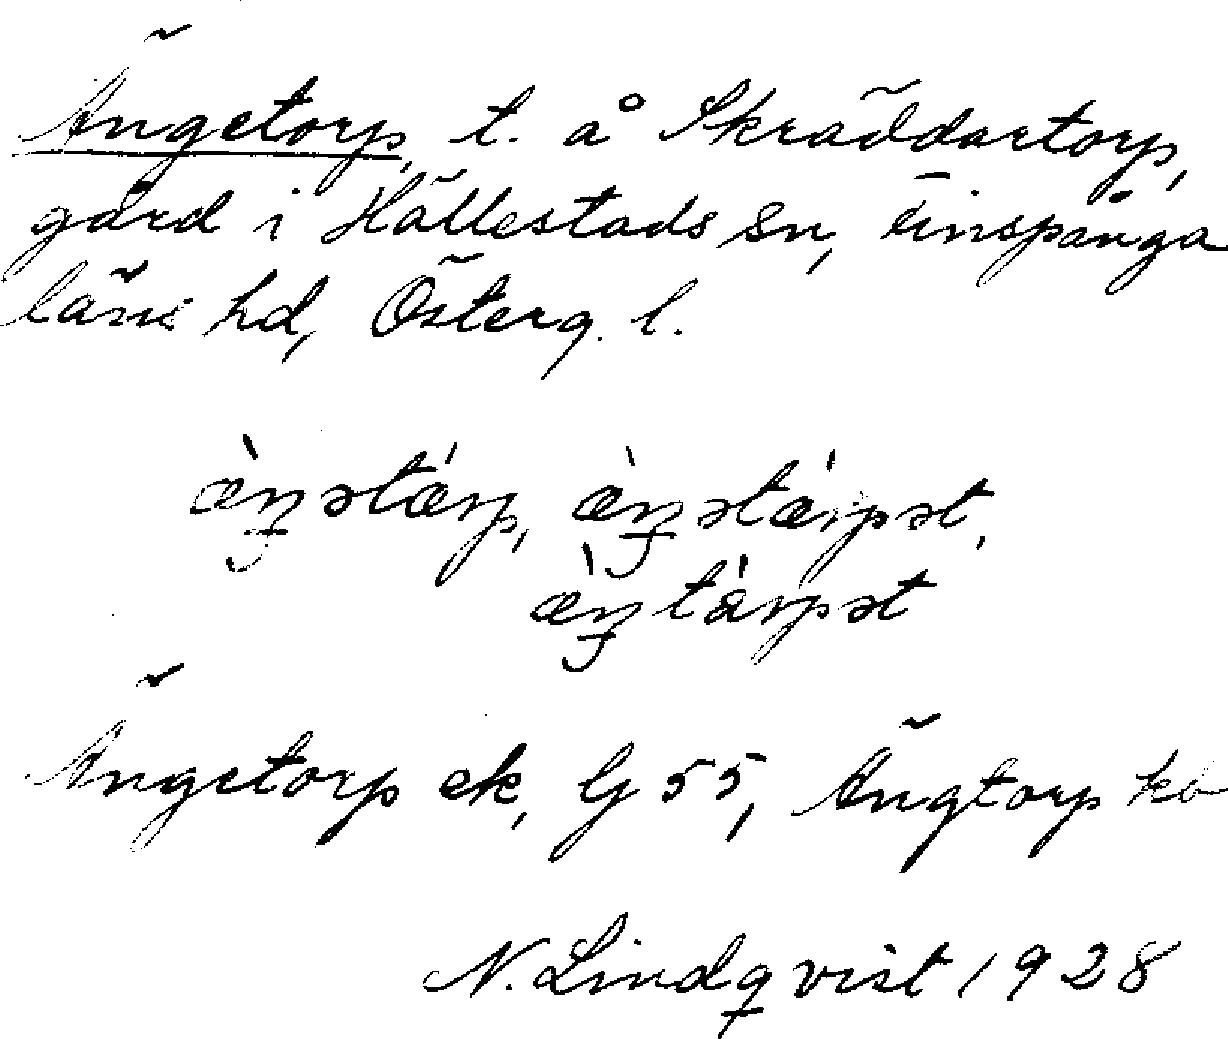 Ängetorp, t. å Skräddartorp,
gård i Hällestads sn, Finspånga
läns hd, Österg. l.
æ̀ŋətárp, æ̀ŋətárpət,
æ̀ŋtárpət
Ängetorp ek, G 55, Ängtorp kb
N. Lindqvist 1928